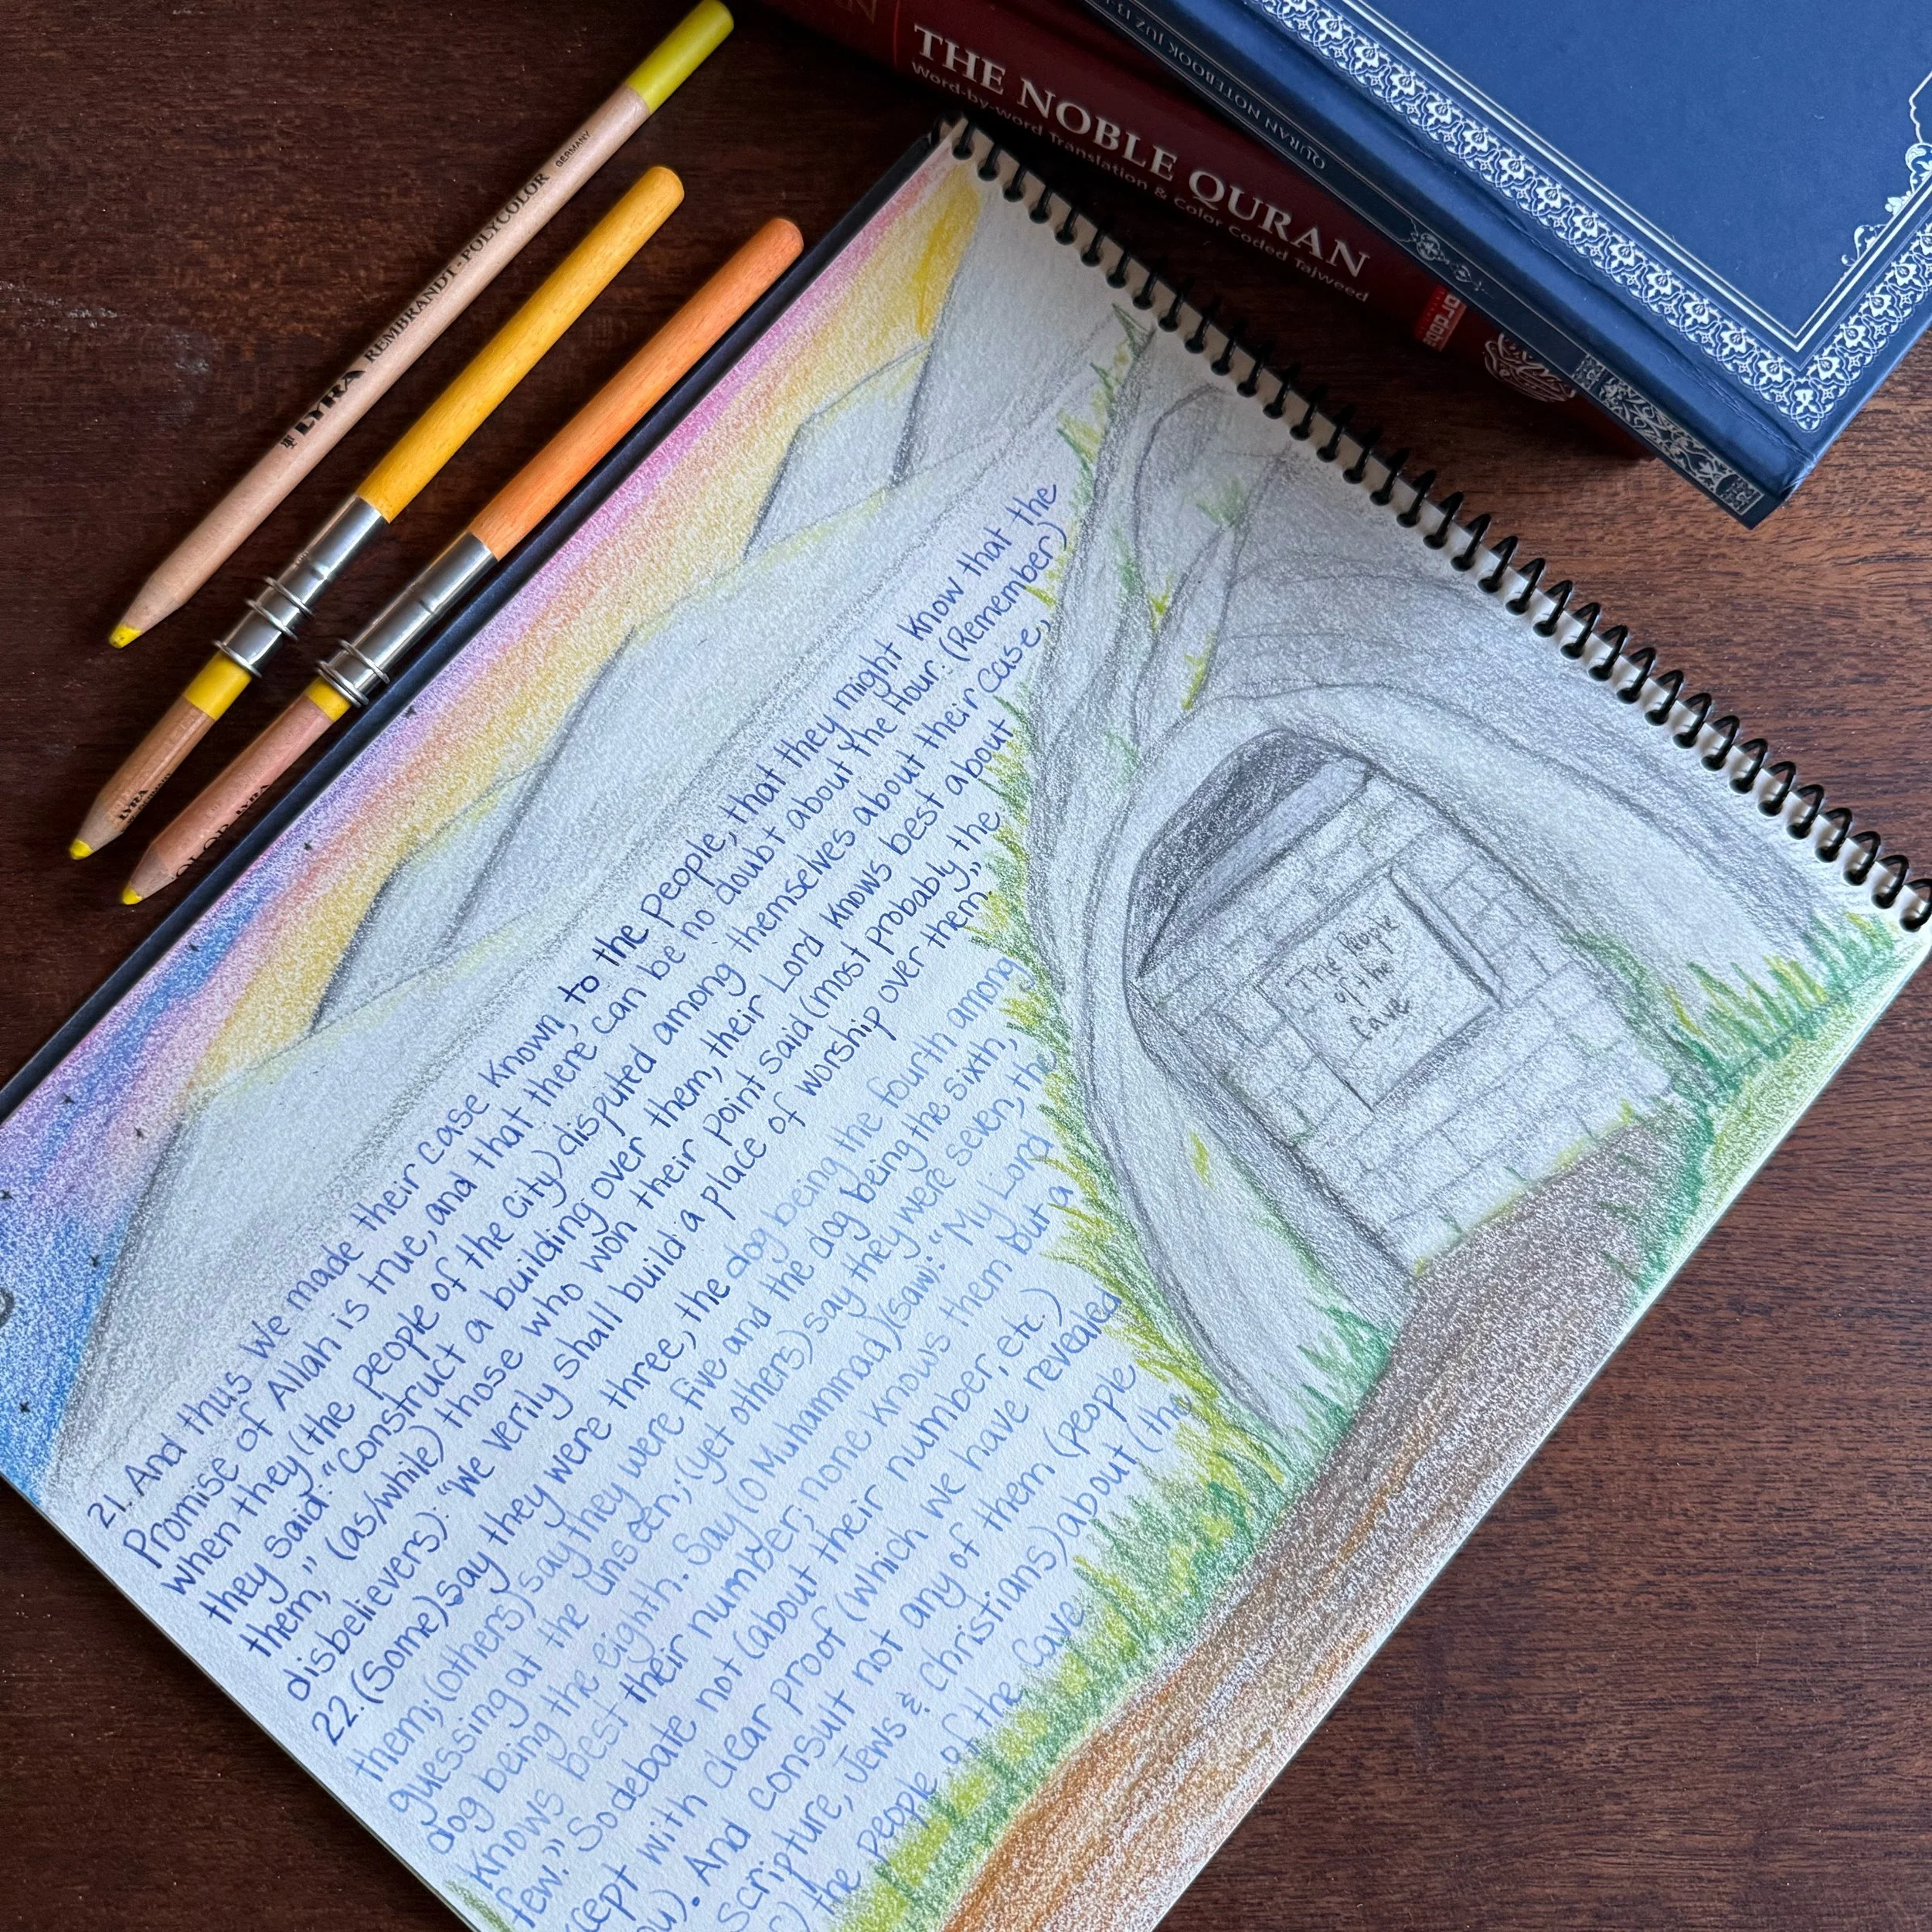 THE NOBLE QURAN
Word-by-word Translation & Color Coded Tajweed
QURAN NOTEBOOK JUZ
LYRA REMBRANDT-POLYCOLOR GERMANY
LYRA
LYRA
21. And thus We made their case known, to the people, that they might know that the
Promise of Allah is true, and that there can be no doubt about the Hour. (Remember)
when they (the people of the City) disputed among themselves about their case,
they said: "Construct a building over them, their Lord knows best about
them," (as/while) those who won their point said (most probably, the
disbelievers): "We verily shall build a place of worship over them.
22. (Some) say they were three, the dog being the fourth among
them; (others) say they were five and the dog being the sixth,
guessing at the unseen; (yet others) say they were seven, the
dog being the eighth. Say (O Muhammad) (saw): "My Lord
knows best their number; none knows them but a
few." So debate not (about their number, etc.)
except with clear proof (which We have revealed
you). And consult not any of them (people
Scripture, Jews & Christians) about (the
the People of the Cave.
The People
of the
Cave